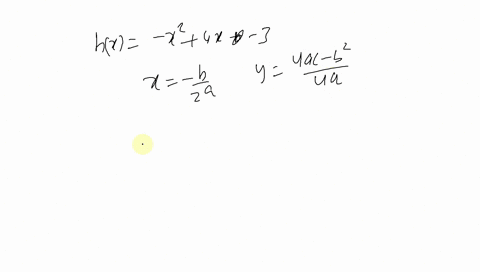 h(x) = -x² + 4x - 3
x = -b/2a y = 4ac-b²/4a